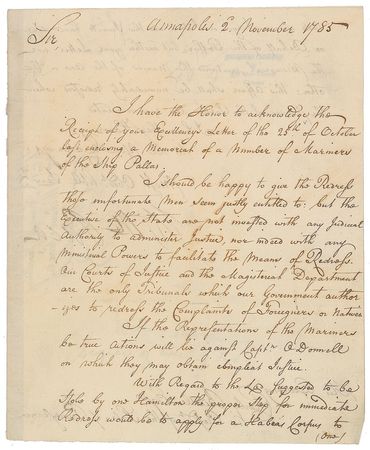 Annapolis 2d. November 1785
Sir
I have the Honor to acknowledge the
Receipt of your Excellency's Letter of the 28th of October
last enclosing a Memorial of a Number of Mariners
of the Ship Pallas.
I should be happy to give the Redress
these unfortunate Men seem justly entitled to; but the
Executive of the State are not invested with any Judicial
Authority to administer Justice, nor indeed with any
Ministerial Powers to facilitate the Means of Redress.
Our Courts of Justice and the Magisterial Department
are the only Tribunals which our Government author
-izes to redress the Complaints of Foreigners or Natives
If the Representations of the Mariners
be true Actions will lie against Captn. O Donnell
on which they may obtain compleat Justice.
With Regard to the Lad suggested to be
stole by one Hamilton the proper Step for immediate
Redress would be to apply for a Habeas Corpus to
(one)